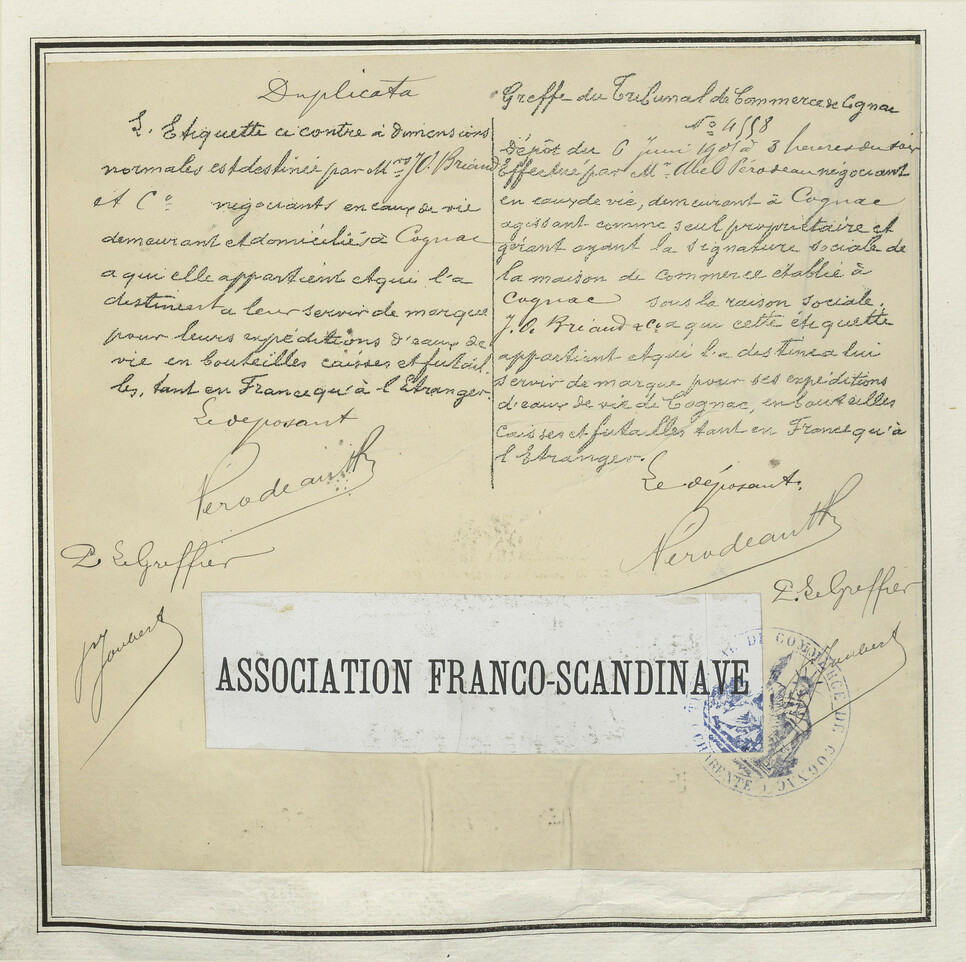 Duplicata
L'Etiquette ci contre à dimensions
normales est destinée par Mrs J.O. Briand
et Co négociants en eaux de vie
demeurant et domiciliés à Cognac
a qui elle appartient et qui l'a
destinent a leur servir de marque
pour leurs expéditions d'eaux de
vie en bouteilles caisses et futail
les, tant en France qu'à l'Etranger
Le déposant
Pérodeau
P. Le Greffier
Joubert
Greffe du Tribunal de Commerce de Cognac
No 4558
Dépôt du 6 Juin 1901 à 3 heures du soir
Effectué par Mr Abel Pérodeau négociant
en eaux de vie, demeurant à Cognac
agissant comme seul propriétaire et
gérant ayant la signature sociale de
la maison de Commerce établie à
Cognac sous la raison sociale.
J.O. Briand & Co a qui cette étiquette
appartient et qui l'a destinée a lui
servir de marque pour ses expéditions
d'eaux de vie de Cognac, en bouteilles
caisses et futailles tant en France qu'à
l'Etranger.
Le déposant.
Pérodeau
P. Le Greffier
Joubert
ASSOCIATION FRANCO-SCANDINAVE
DE COMMERCE DE COGNAC
CHARENTE